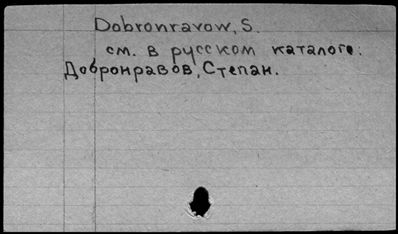 Dobronravow, S.
см. в русском каталоге:
Добронравов, Степан.